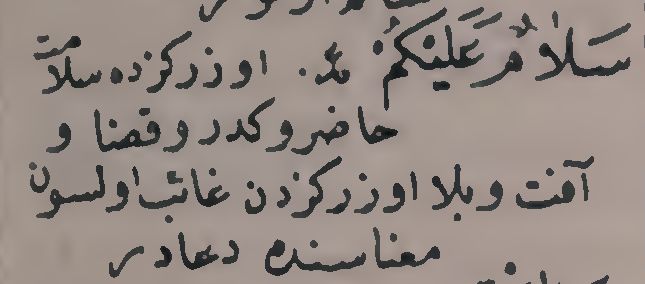 سَلَامٌ عَلَيْكُمْ اوزرکزده سلامت
حاضر و کدر و قضا و
آفت و بلا اوزرکزدن غائب اولسون
معناسنده دعادر